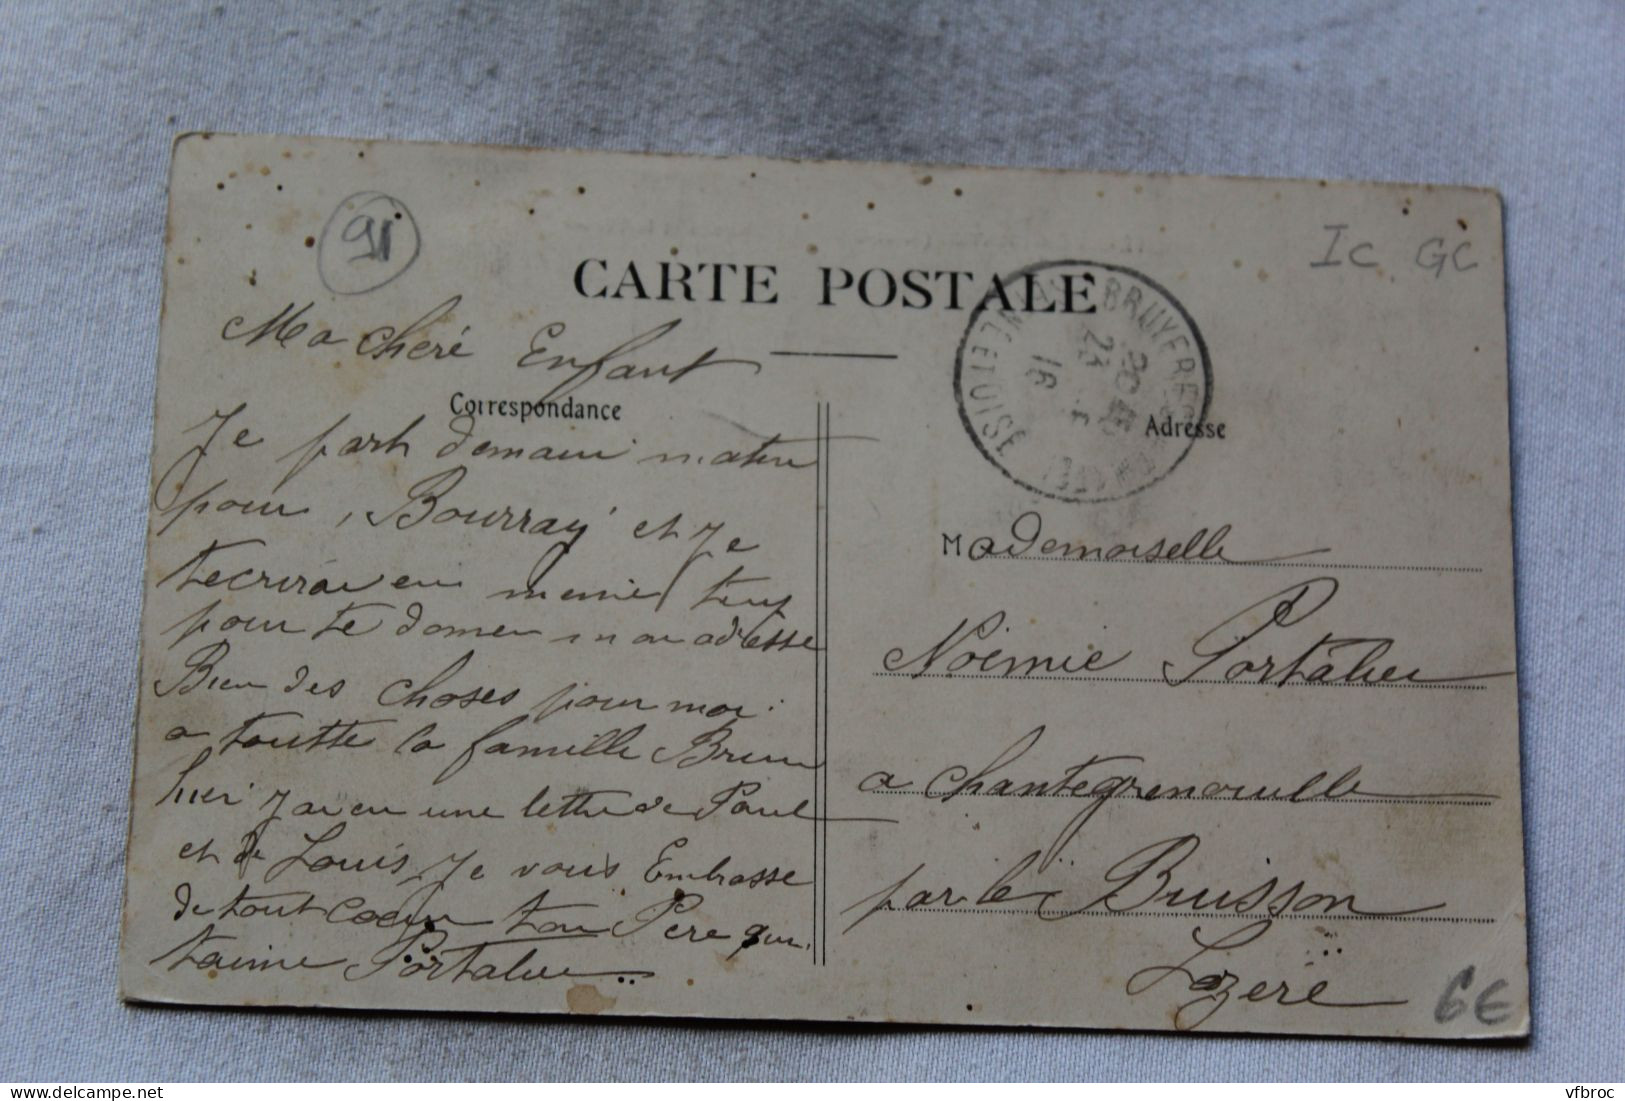 91
IC GC
CARTE POSTALE
BRUYERES
SEINE ET OISE
23
16
Ma cheré Enfant
Correspondance
Adresse
Je part demain matin
pour, Bourray et Je
tecrirai en meme temp
pour te donner mon adresse
Bien des choses pour moi
a toutte la famille Brun
hier Jai eu une lettre de Paul
et de Louis, Je vous Embrasse
de tout coeur ton Pere qui
taime Portalier
Mademoiselle
Noèmie Portalier
a Chantegrenouille
par le Buisson
Lozere
6€
vfbroc